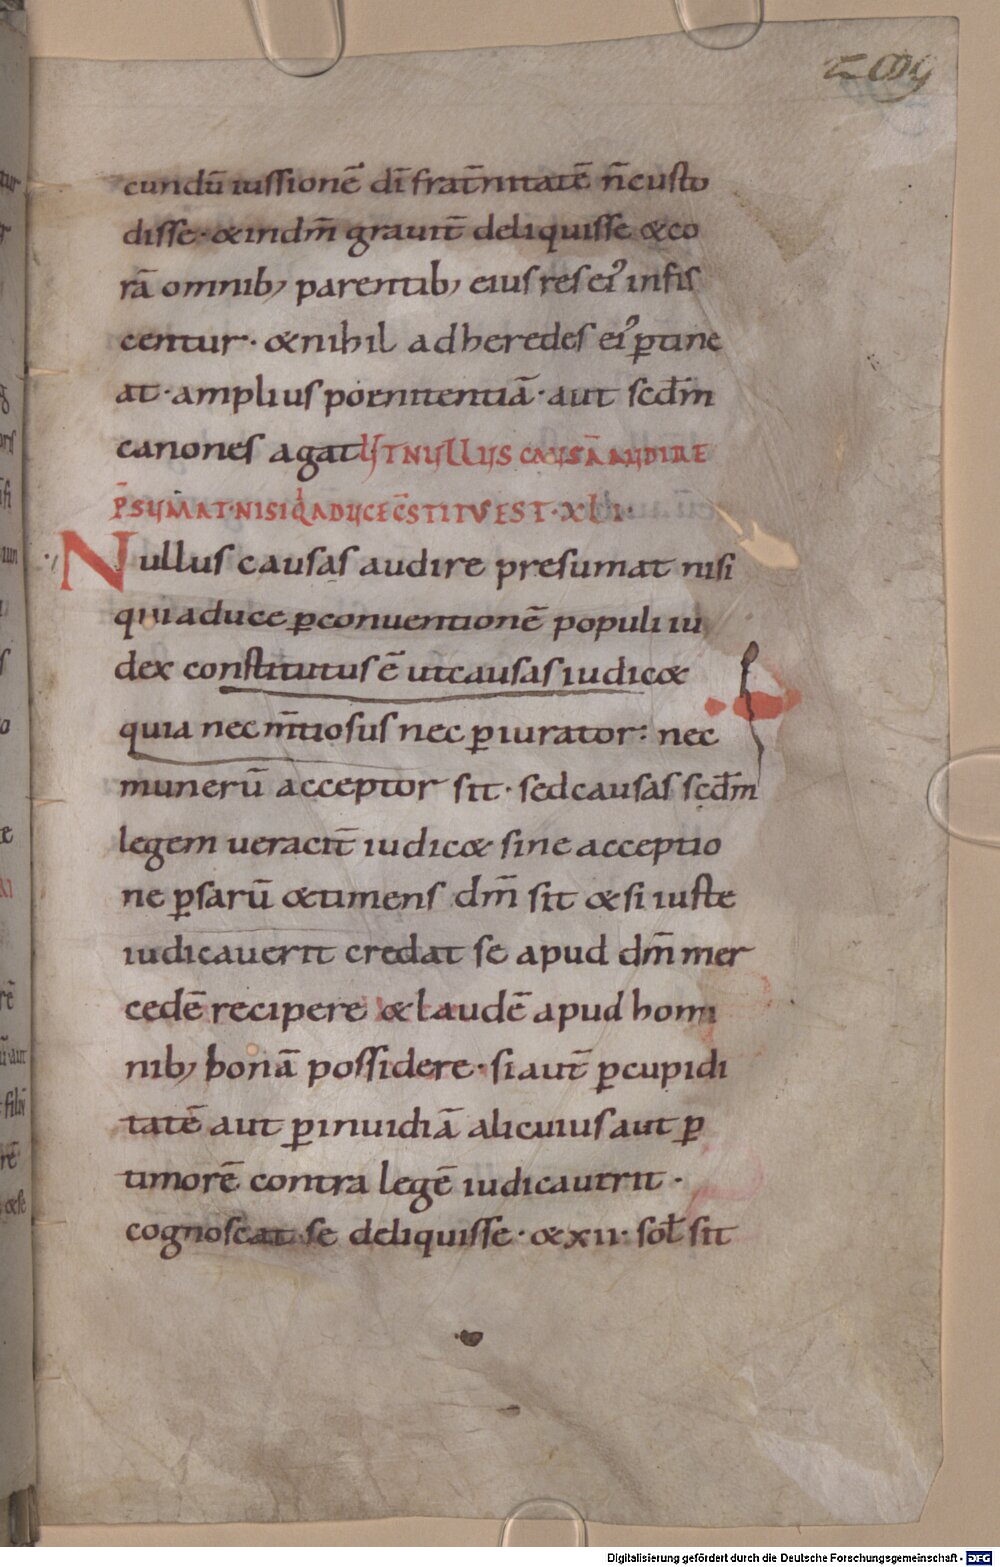 cundū iussionē dī frat̄nitatē n̄ custo
disse · & in dm̄ grauit̄ deliquisse & co
rā omnib; parentib; eius res ei' infis
centur · & nihil ad heredes ei' ꝑtine
at · amplius poenitentiā · aut scd̄m
canones agat UT NULLUS CAUSĀ AUDIRE
P̄SUMAT · NISI Q̄ A DUCE C̄STITUT EST · XLI ·
Nullus causas audire presumat nisi
qui a duce ꝑ conuentionē populi iu
dex constitutus ē ut causas iudic&
quia nec m̄tiosus nec ꝑiurator : nec
munerū acceptor sit · sed causas scd̄m
legem ueracit̄ iudic& sine acceptio
ne ꝑsarū & timens dm̄ sit & si iuste
iudicauerit credat se apud dm̄ mer
cedē recipere & laudē apud homi
nib; bonā possidere · si aut̄ ꝑ cupidi
tatē aut ꝑ inuidiā alicuius aut ꝑ
timorē contra legē iudicauerit ·
cognoscat se deliquisse · & xii · sol̄ sit
Digitalisierung gefördert durch die Deutsche Forschungsgemeinschaft - DFG